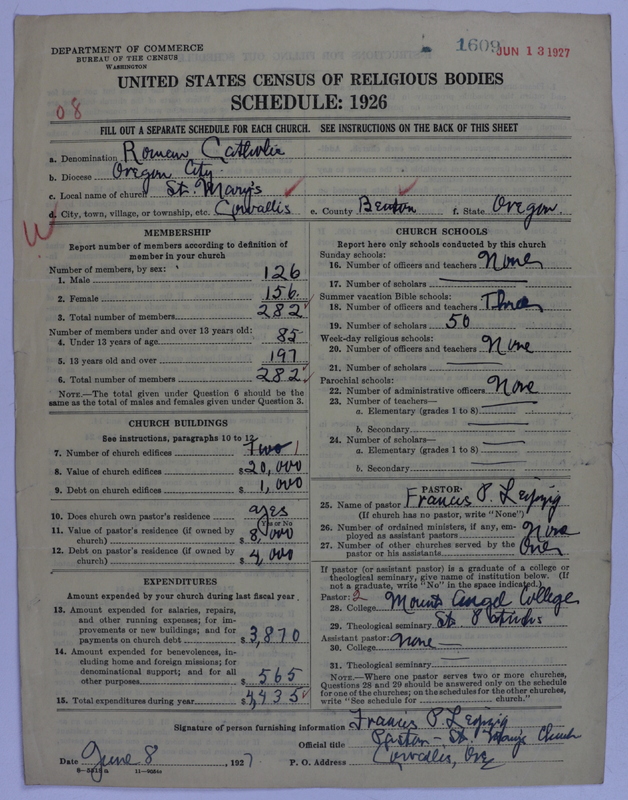 DEPARTMENT OF COMMERCE
BUREAU OF THE CENSUS
WASHINGTON
1609 JUN 13 1927
UNITED STATES CENSUS OF RELIGIOUS BODIES
SCHEDULE: 1926
08
FILL OUT A SEPARATE SCHEDULE FOR EACH CHURCH. SEE INSTRUCTIONS ON THE BACK OF THIS SHEET
a. Denomination Roman Catholic
b. Diocese Oregon City
c. Local name of church St. Mary's
d. City, town, village, or township, etc. Corvallis e. County Benton f. State Oregon
MEMBERSHIP
Report number of members according to definition of member in your church
Number of members, by sex:
1. Male 126
2. Female 156
3. Total number of members 282
Number of members under and over 13 years old:
4. Under 13 years of age 85
5. 13 years old and over 197
6. Total number of members 282
NOTE.—The total given under Question 6 should be
same as the total of males and females given under Question 3.
CHURCH BUILDINGS
See instructions, paragraphs 10 to 12
7. Number of church edifices Two 1
8. Value of church edifices $20,000
9. Debt on church edifices $1,000
10. Does church own pastor's residence yes
Yes or No
11. Value of pastor's residence (if owned by
church) $8,000
12. Debt on pastor's residence (if owned by
church) $4,000
EXPENDITURES
Amount expended by your church during last fiscal year
13. Amount expended for salaries, repairs,
and other running expenses; for im-
provements or new buildings; and for
payments on church debt $3,870
14. Amount expended for benevolences, in-
cluding home and foreign missions; for
denominational support; and for all
other purposes $565
15. Total expenditures during year $4,435
CHURCH SCHOOLS
Report here only schools conducted by this church
Sunday schools:
16. Number of officers and teachers None
17. Number of scholars
Summer vacation Bible schools:
18. Number of officers and teachers Three
19. Number of scholars 50
Week-day religious schools:
20. Number of officers and teachers None
21. Number of scholars
Parochial schools:
22. Number of administrative officers None
23. Number of teachers—
a. Elementary (grades 1 to 8)
b. Secondary
24. Number of scholars—
a. Elementary (grades 1 to 8)
b. Secondary
PASTOR
25. Name of pastor Francis P. Leipzig
(If church has no pastor, write "None")
26. Number of ordained ministers, if any, em-
ployed as assistant pastors None
27. Number of other churches served by the
pastor or his assistants One
If pastor (or assistant pastor) is a graduate of a college or
theological seminary, give name of institution below. (If
not a graduate, write "No" in the space indicated.)
Pastor: 2
28. College Mount Angel College
29. Theological seminary St. Patricks
Assistant pastor: None
30. College
31. Theological seminary
NOTE.—Where one pastor serves two or more churches,
Questions 28 and 29 should be answered only on the schedule
for one of the churches; on the schedules for the other churches,
write "See schedule for church."
Signature of person furnishing information Francis P. Leipzig
Official title Pastor - St. Mary's Church
Date June 8, 1927 P. O. Address Corvallis, Ore